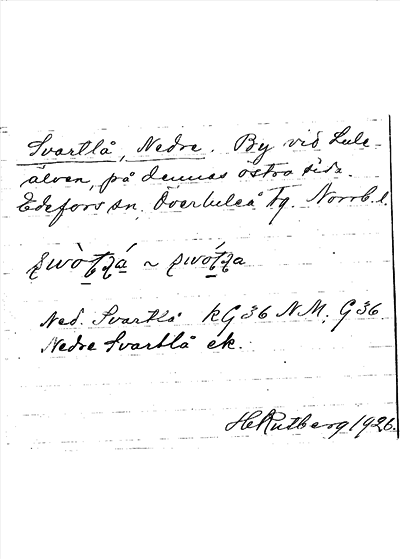 Svartlå, Nedre. By vid Lule-
älven, på dennas östra sida.
Edefors sn. Överluleå tg. Norrb. l.
~
Ned. Svartlå kG36 NM, G36
Nedre Svartlå ek.
HRutberg 1926.